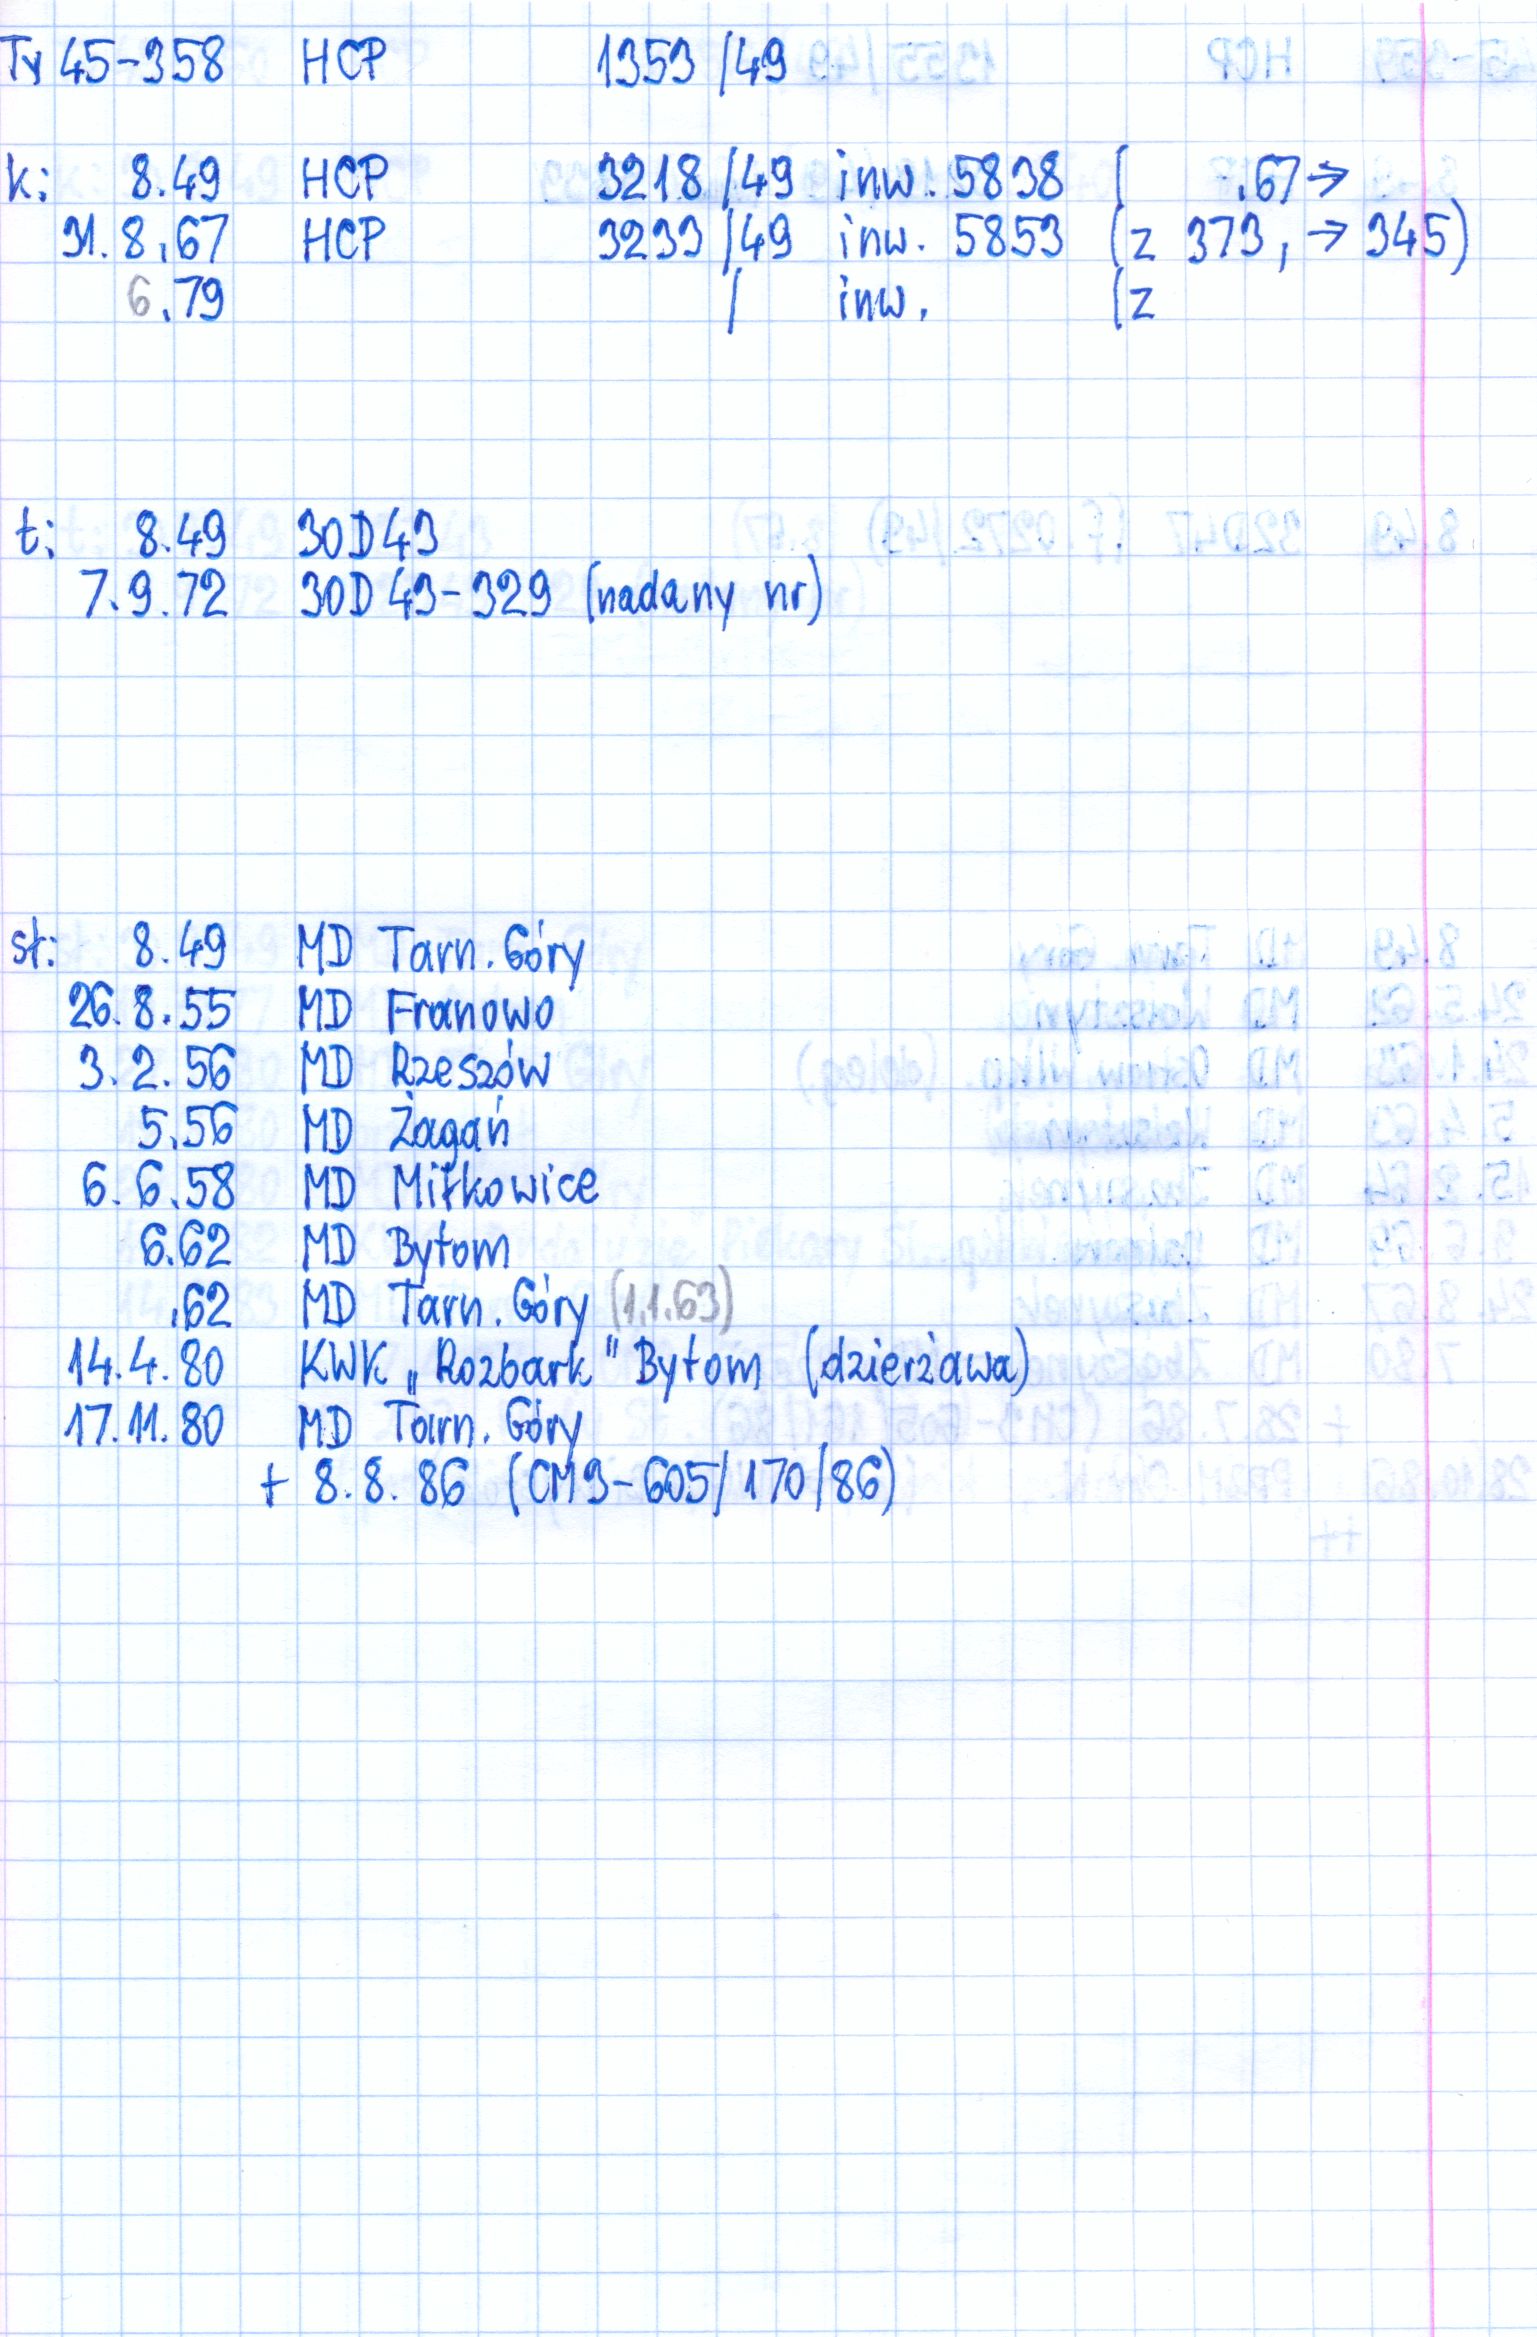 Ty 45-358 HCP 1353/49
k: 8.49 HCP 3218/49 inw. 5838 ( .67→
31.8.67 HCP 3233/49 inw. 5853 (z 373, → 345)
6.79 / inw. (z
t: 8.49 30D43
7.9.72 30D43-329 (nadany nr)
st: 8.49 MD Tarn. Góry
26.8.55 MD Franowo
3.2.56 MD Rzeszów
5.56 MD Żagań
6.6.58 MD Miłkowice
6.62 MD Bytom
.62 MD Tarn. Góry (1.1.63)
14.4.80 KWK „Rozbark" Bytom (dzierżawa)
17.11.80 MD Tarn. Góry
+ 8.8.86 (CM3-605/170/86)